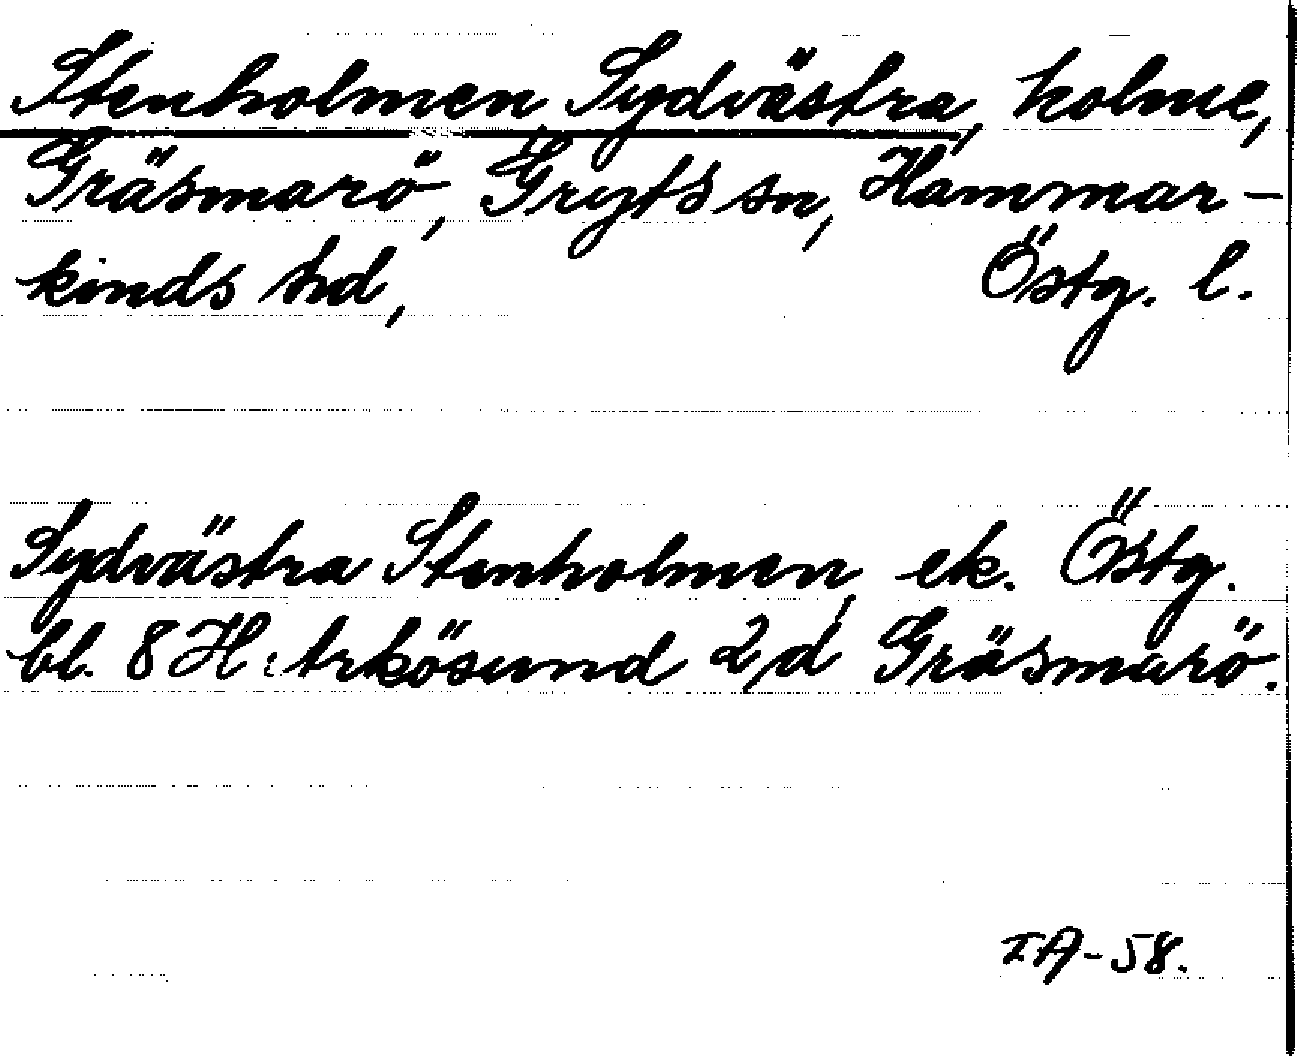 Stenholmen, Sydvästra, holme,
Gräsmarö, Gryts sn, Hammar-
kinds hd, Östg. l.
Sydvästra Stenholmen, ek. Östg.
bl. 8 H: Arkösund 2/d Gräsmarö.
IA-58.